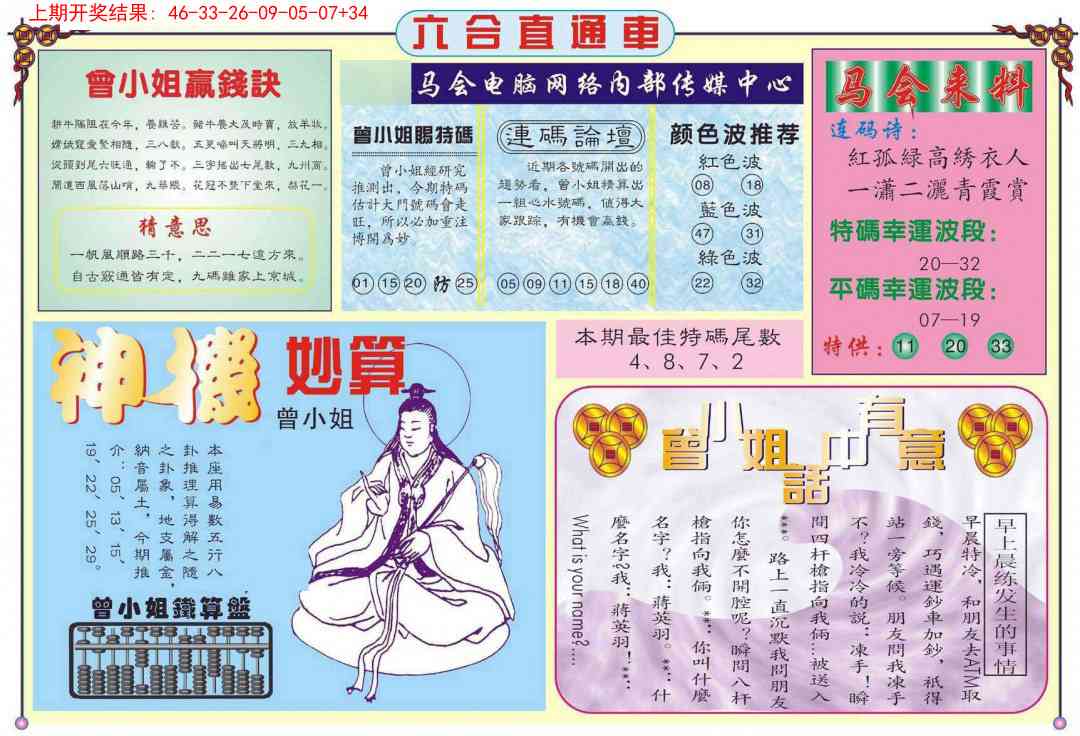 上期开奖结果：46-33-26-09-05-07+34
六合直通車
曾小姐贏錢訣
耕牛隔阻在今年，養雞苦。豬牛養大及時賣，放羊妝。
猜意思
一帆風順路三千，二二一七這方來。
自古竅通皆有定，九碼雖家上京城。
马会电脑网络内部传媒中心
曾小姐賜特碼
曾小姐經研究
推測出，今期特碼
估計大門號碼會走
旺，所以必加重注
博開為妙
01 15 20 防 25
連碼論壇
近期各號碼開出的
趨勢看，曾小姐精算出
一組心水號碼，值得大
家跟踪，有機會贏錢。
05 09 11 15 18 40
颜色波推荐
紅色波
08 18
藍色波
47 31
綠色波
22 32
马会来料
连码诗：
紅孤緑高綉衣人
一瀟二灑青霞賞
特碼幸運波段：
20—32
平碼幸運波段：
07—19
特供：11 20 33
神機妙算
曾小姐
本座用易數五行八
卦推理算得解之隨
之卦象，地支屬金，
納音屬土，今期推
介：05、13、15、
19、22、25、29。
曾小姐鐵算盤
本期最佳特碼尾數
4、8、7、2
曾小姐話中有意
早上晨练发生的事情
早晨特冷，和朋友去ATM取
錢，巧遇運鈔車加鈔，祇得
站一旁等候。朋友問我凍手
不？我冷冷的說：凍手！瞬
間四杆槍指向我倆…被送入
***。路上一直沉默我問朋友
你怎麼不開腔呢？瞬間八杆
槍指向我倆。***：你叫什麼
名字？我：蔣英羽。***：什
麼名字？我：蔣英羽！***：
What is your name?....